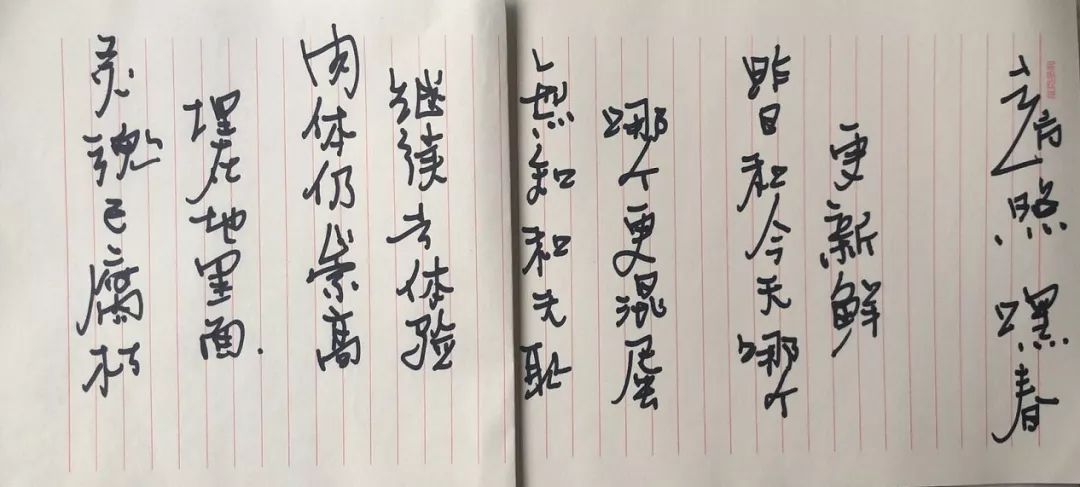 灵魂已腐朽
埋在地里面.
肉体仍崇高
继续去体验
無知和无耻
哪个更混蛋
昨日和今天哪个
更新鲜
照 嘿春